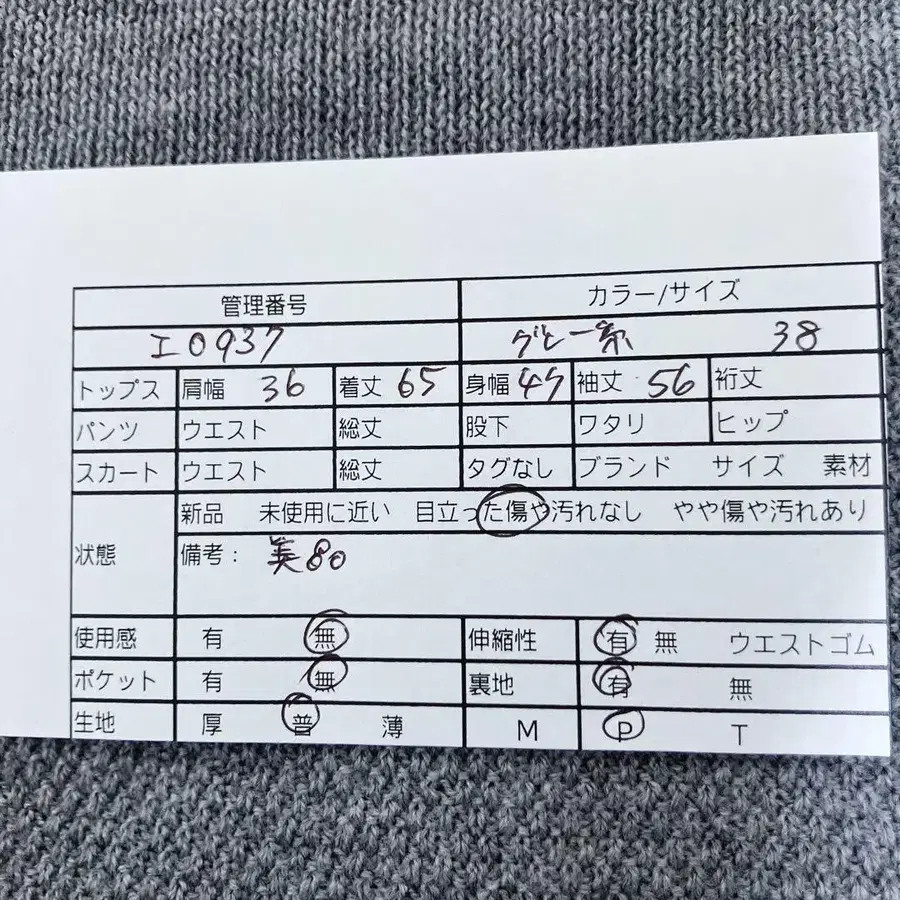 管理番号 カラー/サイズ
エ0937 グレー系 38
トップス 肩幅 36 着丈 65 身幅 47 袖丈 56 裄丈
パンツ ウエスト 総丈 股下 ワタリ ヒップ
スカート ウエスト 総丈 タグなし ブランド サイズ 素材
新品 未使用に近い 目立った傷や汚れなし やや傷や汚れあり
状態 備考: 美80
使用感 有 無 伸縮性 有 無 ウエストゴム
ポケット 有 無 裏地 有 無
生地 厚 普 薄 M P T